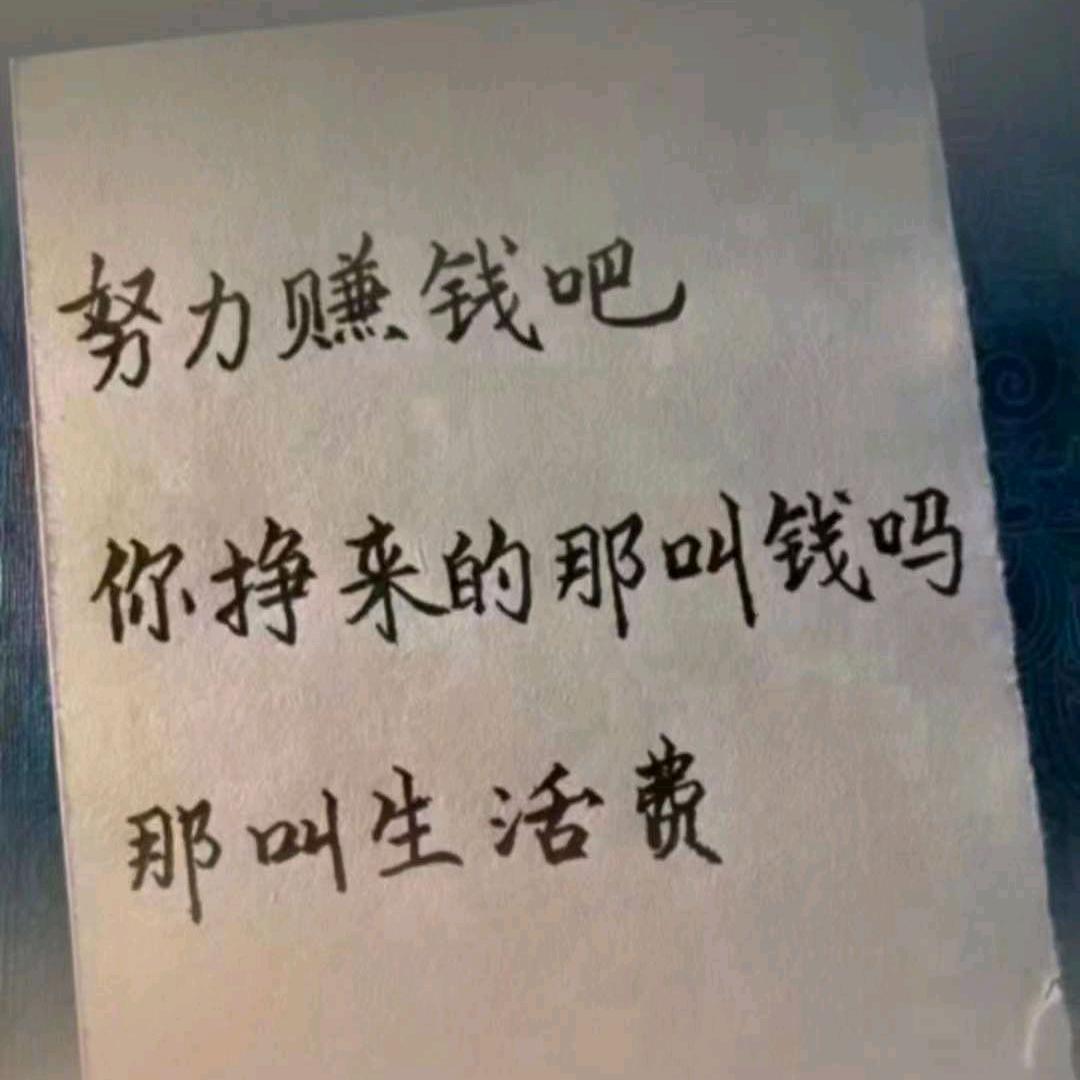 努力赚钱吧
你挣来的那叫钱吗
那叫生活费